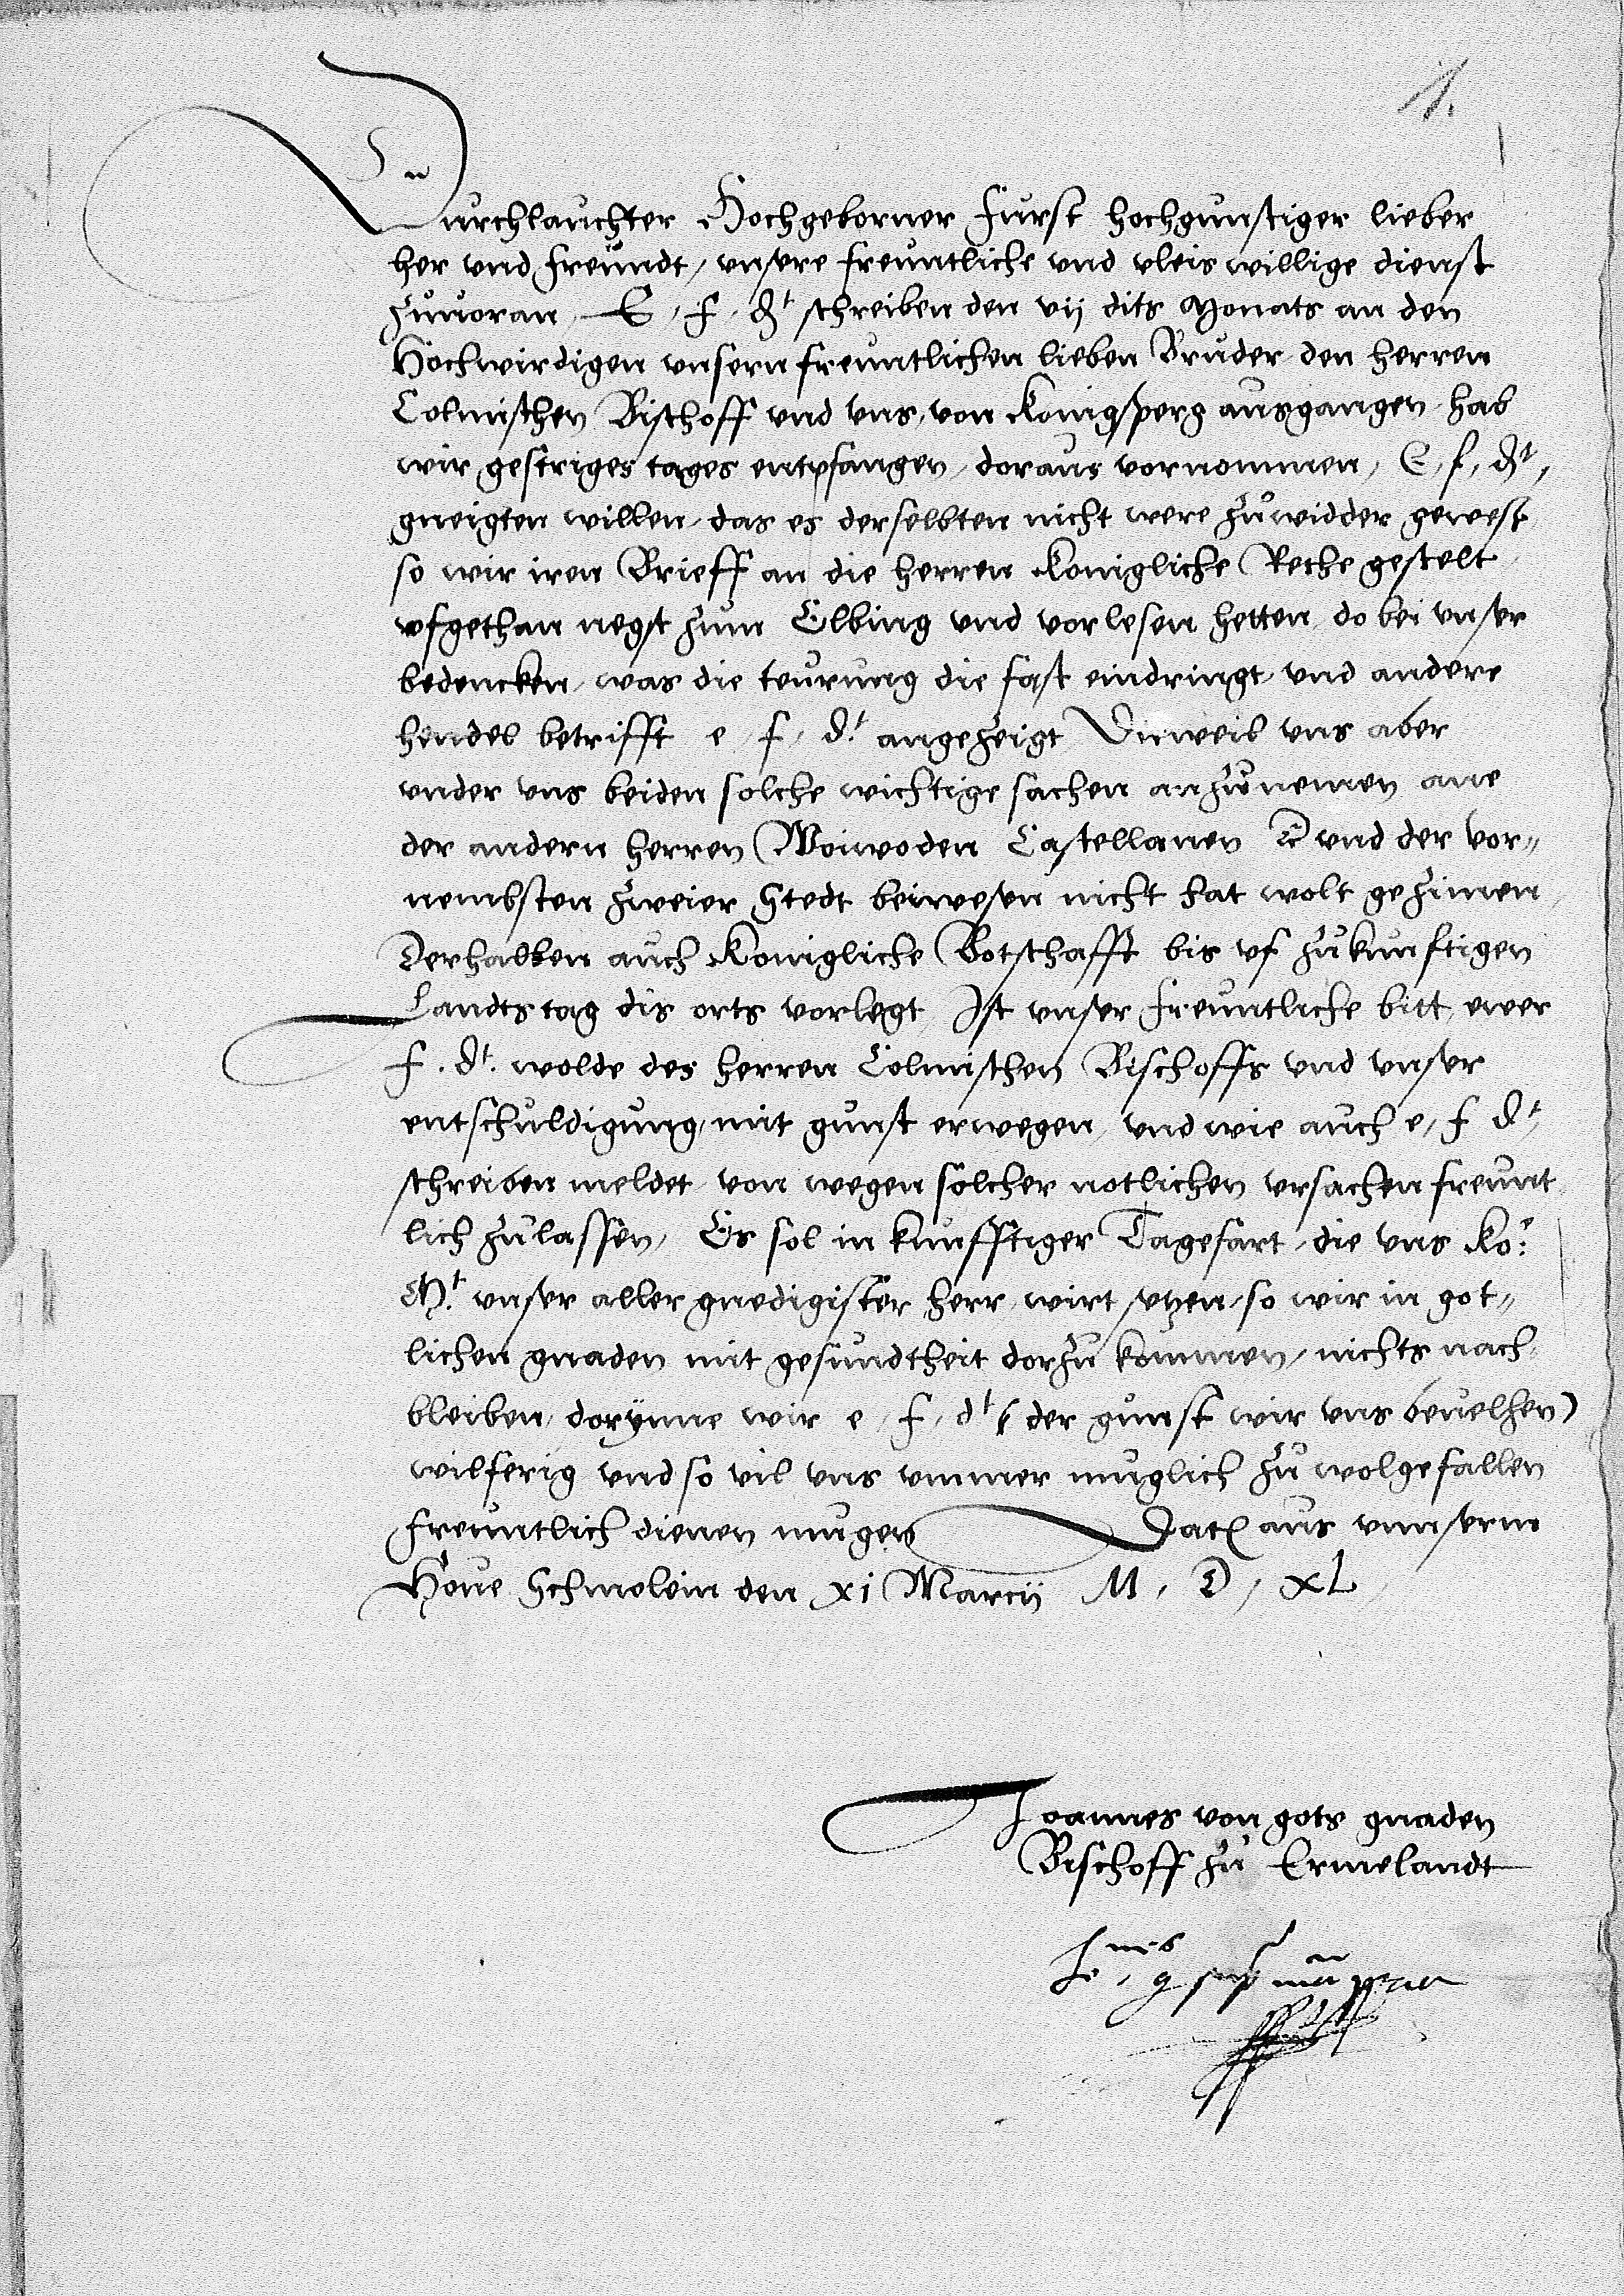 1.
Durchlauchter Hochgeborner Furst hochgunstiger lieber
her vnd freundt, vnsere freuntliche vnd vleis willige dienst
zuuoran, E, f, dt schreiben den vij dits Monats an den
Hochwirdigen vnsern freuntlichen lieben Bruder den herren
Colmischen Bischoff vnd vns, von Konigsperg ausgangen, hab
wir gestriges tages entpfangen, doraus vornommen, E, f, dt,
gneigten willen, das es derselbten nicht were zuwidder gewest,
so wir iren Brieff an die herren Konigliche Rethe gestelt
vfgethan negst zum Elbing vnd vorlesen hetten, do bei vnser
bedencken, was die teurung die fast eindringt, vnd andere
hendel betrifft e, f, dt. angezeigt, Dieweil vns aber
vnder vns beiden solche wichtige sachen anzunemen ane
der andern herren Woiwoden Castellanen etc vnd der vor,,
nembsten zweier Stedt beiwesen nicht hat wolt gezimen,
Derhalben auch Konigliche Botschafft bis vf zukunftigen
Landtstag dis orts vorlegt, Ist vnser freuntliche bitt, ewer
f. dt. wolde des herren Colmischen Bischoffs vnd vnser
entschuldigung, mit gunst erwegen, vnd wie auch e, f dt,
schreiben meldet, von wegen solcher notlichen vrsachen freunt,
lich zulassen, Es sol in kunfftiger Tagefart, die vns Ko:e
Mt. vnser aller gnedigister herr, wirt setzen, so wir in got,,
lichen gnaden mit gesundtheit dorzu kommen, nichts nach,
bleiben, dorynne wir e, f, dt ( der gunst wir vns beuelhen)
wilferig vnd so vil vns vmmer muglich zu wolgefallen
freuntlich dienen mugen Dat aus vnnserm
Houe Schmolein den xi Marcij M, D, XL,
Joannes von gots gnaden
Bischoff zu Ermelandt